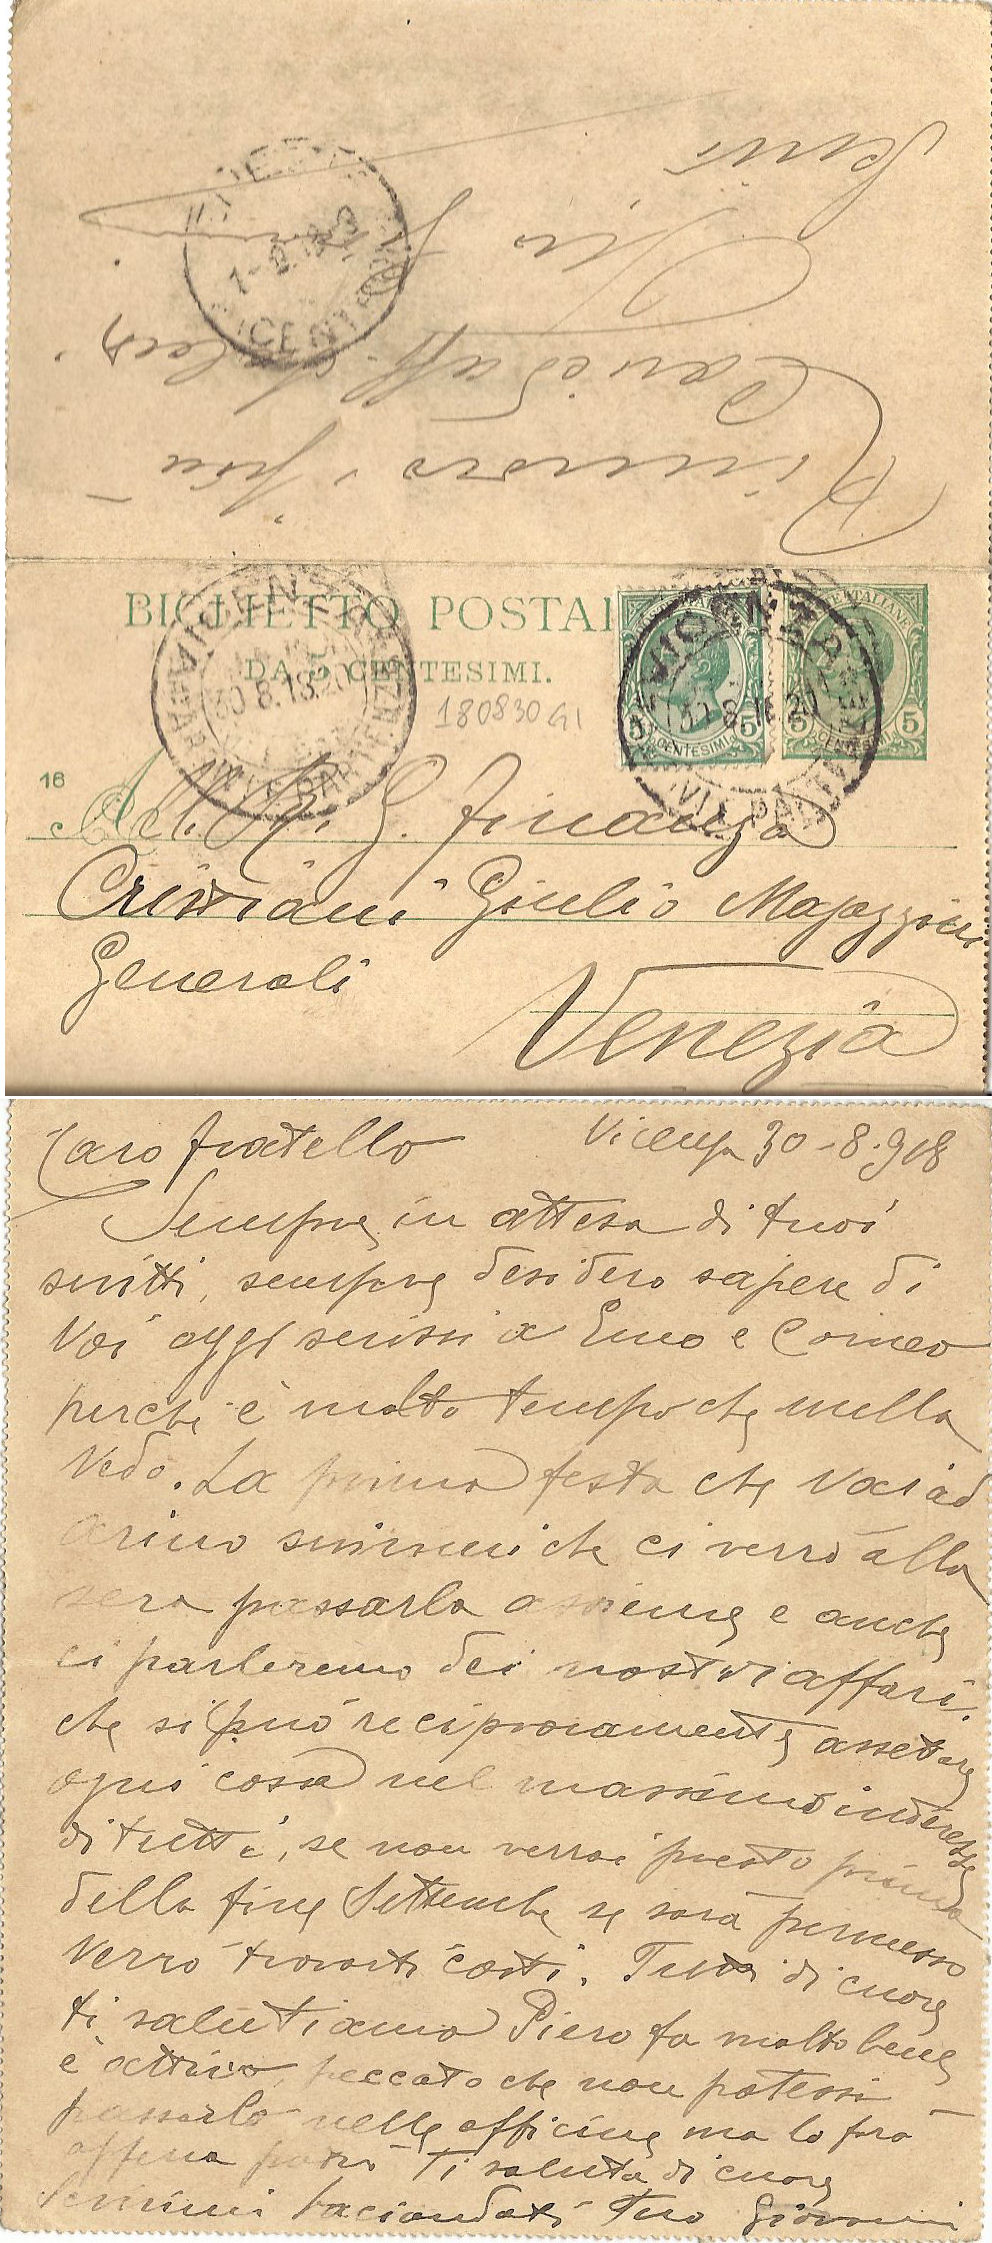 Rimoro i più
Cari saff. saluti
Tuo
Scrivi
VICENZA
BIGLIETTO POSTALE
DA 5 CENTESIMI.
VICENZA
30.8.18.20
ARRIVI E PARTENZE
POSTE ITALIANE
5 CENTESIMI 5
5 CENTESIMI 5
180830G1
16
All. R. G. Finanza
Cristiani Giulio Magazzini
Generali
Venezia
Vicenza 30-8-918
Caro fratello
Sempre in attesa di tuoi
scritti, sempre desidero sapere di
Voi oggi scrissi a Enno e Corneo
perchè è molto tempo che nulla
vedo. La prima festa che vai ad
arino scrivimi che ci verrò alla
sera passarla assieme e anche
ci parleremo dei nostri affari.
che si può reciprocamente assettare
ogni cossa nel massimo interesse
di tutti, se non verrai presto prima
della fine Settembre se sarà permesso
Verrò trovarti costì. Tutti di cuore
ti salutiamo Piero fa molto bene
è attivo, peccato che non potessi
passarlo nelle officine ma lo farò
appena potrò Ti saluta di cuore
Scrivimi baciandoti Tuo Giovanni